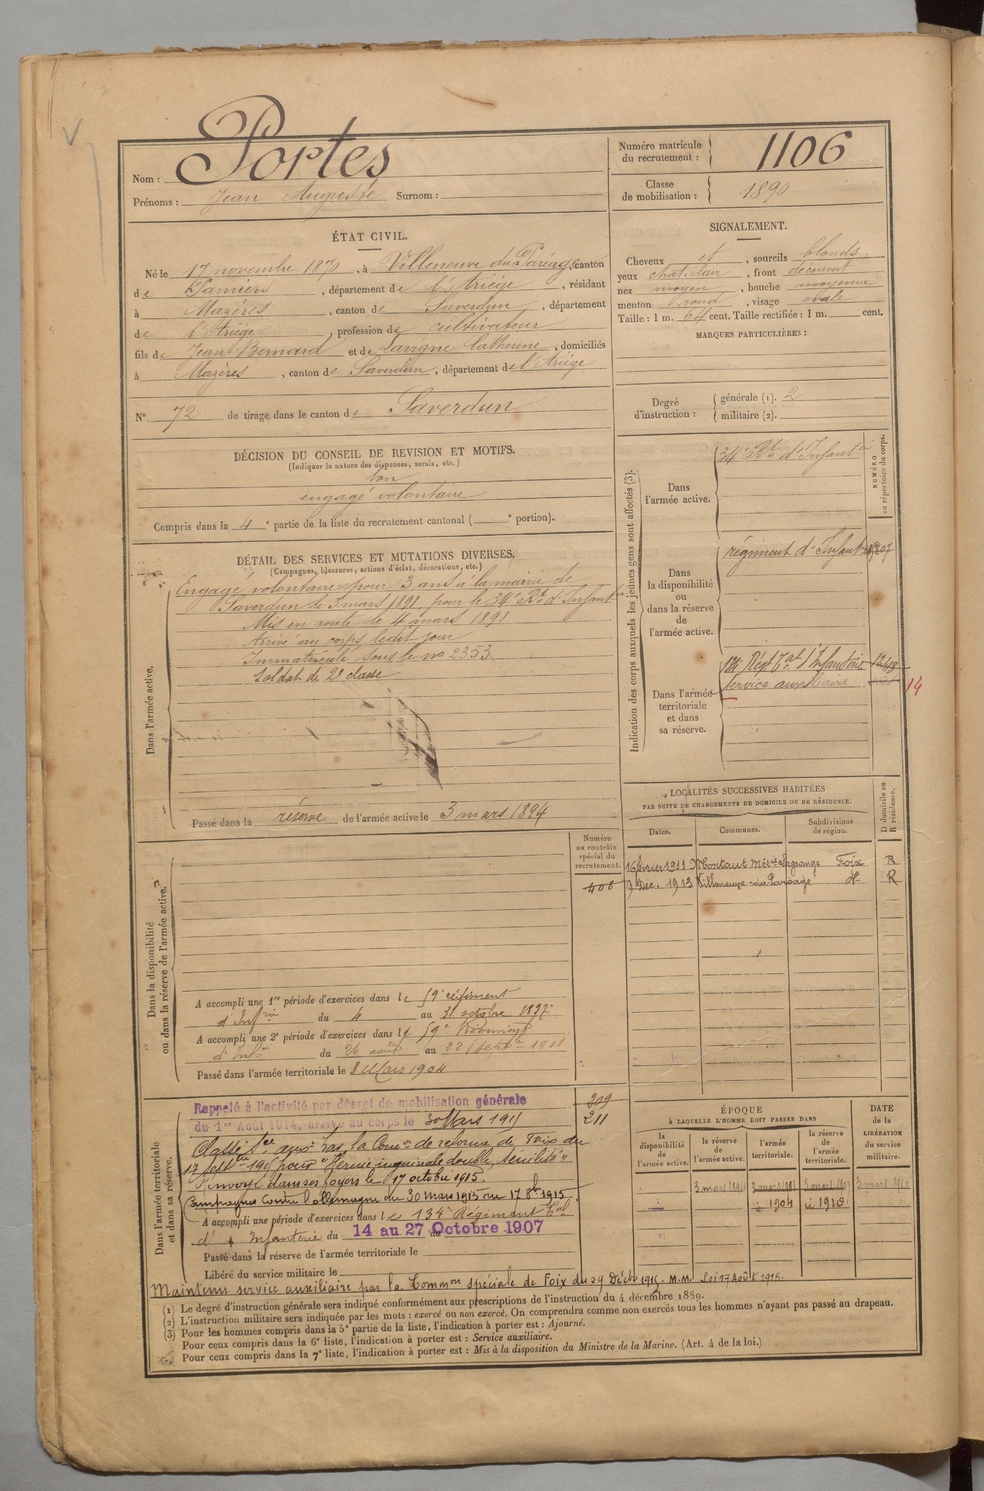 Nom : Portes
Prénoms : Jean Auguste Surnom :
Numéro matricule du recrutement : 1106
Classe de mobilisation : 1890
ÉTAT CIVIL.
Né le 17 novembre 1870, à Villeneuve du Paréage, canton
de Pamiers, département de l'Ariège, résidant
à Mazères, canton de Saverdun, département
de l'Ariège, profession de cultivateur
fils de Jean Bernard et de Lavigne Catherine, domiciliés
à Mazères, canton de Saverdun, département de l'Ariège
N° 72 de tirage dans le canton de Saverdun
SIGNALEMENT.
Cheveux et, sourcils blonds
yeux chat. clair, front découvert
nez moyen, bouche moyenne
menton rond, visage ovale
Taille : 1 m. 64 cent. Taille rectifiée : 1 m. cent.
MARQUES PARTICULIÈRES :
Degré d'instruction : générale (1). 2
militaire (2).
DÉCISION DU CONSEIL DE REVISION ET MOTIFS.
(Indiquer la nature des dispenses, sursis, etc.)
bon
engagé volontaire
Compris dans la 4e partie de la liste du recrutement cantonal ( e portion).
DÉTAIL DES SERVICES ET MUTATIONS DIVERSES.
(Campagnes, blessures, actions d'éclat, décorations, etc.)
Dans l'armée active.
Engagé volontaire pour 3 ans à la mairie de
Saverdun le 3 mars 1891 pour le 34e Rt d'Infantie
Mis en route le 4 mars 1891
Arrivé au corps ledit jour
Immatriculé sous le no 2353
Soldat de 2e classe
Passé dans la réserve de l'armée active le 3 mars 1894
Indication des corps auxquels les jeunes gens sont affectés (3).
NUMÉRO au répertoire du corps.
Dans l'armée active.
34e Rt d'Infantie
Dans la disponibilité ou dans la réserve de l'armée active.
régiment d'Infant
Dans l'armée territoriale et dans sa réserve.
134 Régt Tal d'Infanterie
Service auxiliaire
14
LOCALITÉS SUCCESSIVES HABITÉES
PAR SUITE DE CHANGEMENTS DE DOMICILE OU DE RÉSIDENCE.
Dates. Communes. Subdivisions de région. D domicile ou R résidence.
16 février 1911 Montaut Mét. Lagrange Foix R
9 Déc. 1913 Villeneuve-du-Paréage d° R
Numéro au contrôle spécial du recrutement.
408
Dans la disponibilité ou dans la réserve de l'armée active.
A accompli une 1re période d'exercices dans le 59e régiment
d'Infrie du 4 au 31 octobre 1897
A accompli une 2e période d'exercices dans le 59e Régiment
d'Infie du 26 août au 22 septbre 1901
Passé dans l'armée territoriale le 3 Mars 1904
Dans l'armée territoriale et dans sa réserve.
Rappelé à l'activité par décret de mobilisation générale
du 1er Août 1914, arrivé au corps le 30 Mars 1915
209
211
Classé Sce auxre par la Comon de réforme de Foix du
17 septbre 1915 pour "Hernie inguinale double, sénilité"
Renvoyé dans ses foyers le 17 octobre 1915.
Campagnes Contre l'allemagne du 30 mars 1915 au 17 8bre 1915.
A accompli une période d'exercices dans le 134e Régiment Tal
d'Infanterie du 14 au 27 Octobre 1907
Passé dans la réserve de l'armée territoriale le
Libéré du service militaire le
Maintenu service auxiliaire par la Common spéciale de Foix du 29 Décbre 1915. M.M. Loi 17 Août 1915.
ÉPOQUE
À LAQUELLE L'HOMME DOIT PASSER DANS
la disponibilité de l'armée active. la réserve de l'armée active. l'armée territoriale. la réserve de l'armée territoriale.
DATE de la LIBÉRATION du service militaire.
3 mars 1894
1904 1910
(1) Le degré d'instruction générale sera indiqué conformément aux prescriptions de l'instruction du 4 décembre 1889.
(2) L'instruction militaire sera indiquée par les mots : exercé ou non exercé. On comprendra comme non exercés tous les hommes n'ayant pas passé au drapeau.
(3) Pour les hommes compris dans la 5e partie de la liste, l'indication à porter est : Ajourné.
Pour ceux compris dans la 6e liste, l'indication à porter est : Service auxiliaire.
Pour ceux compris dans la 7e liste, l'indication à porter est : Mis à la disposition du Ministre de la Marine. (Art. 4 de la loi.)